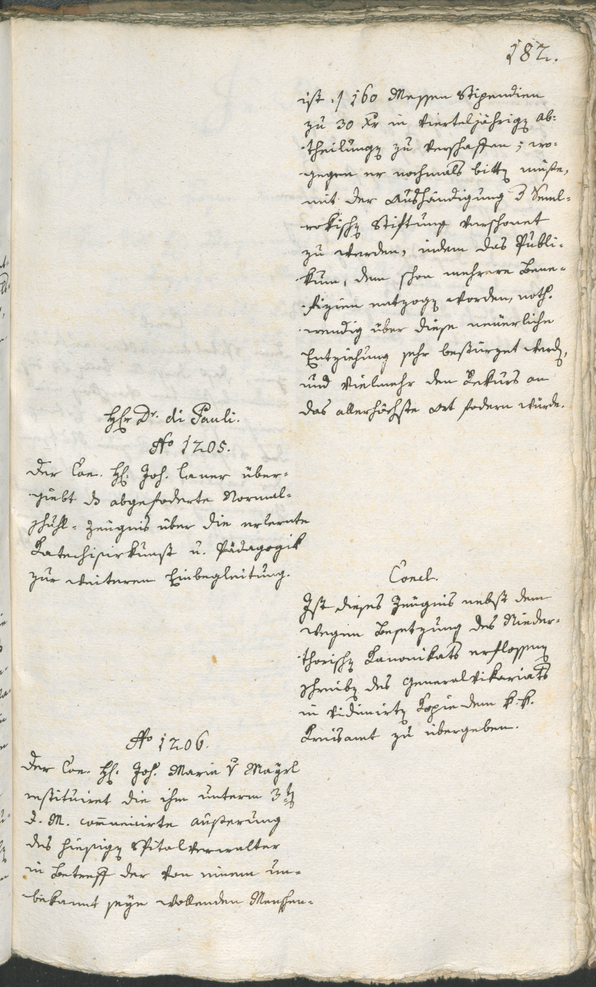 182.
ist ./ 160 Messen Stipendien
zu 30 Xr in vierteljährigen Ab-
theilungen zu verschaffen; wo-
gegen er nochmals bitten müße,
mit der Aushändigung d
Stiftung verschonet
zu werden, indem das Publi-
kum, dem schon mehrere Bene-
fizien entzogen worden, noth-
wendig über diese neuerliche
Entziehung sehr bestürzet werden,
und vielmehr den Rekurs an
das allerhöchste Ort fodern würde.
HE Dr. di Pauli.
No 1205.
Der Con. H. Joh. Laner über-
giebt das abgefoderte Normal-
schuhl-Zeugnis über die erlernte
Katechisirkunst u. Pädagogik
zur weiteren Einbegleitung.
Concl.
Ist dieses Zeugnis nebst dem
wegen Besetzung des Nieder-
thorischen Kanonikats erflossenen
schreiben des Generalvikariats
in vidimirter Kopie dem k. k.
Kreisamt zu übergeben.
No 1206.
Der Con. H. Joh. Maria v Mayrl
restituiret die ihm unterm 3ten
d. M. comunicirte äußerung
des hiesigen Spitalverwalter
in Betreff der von einem un-
bekannt seyn wollenden Menschen-